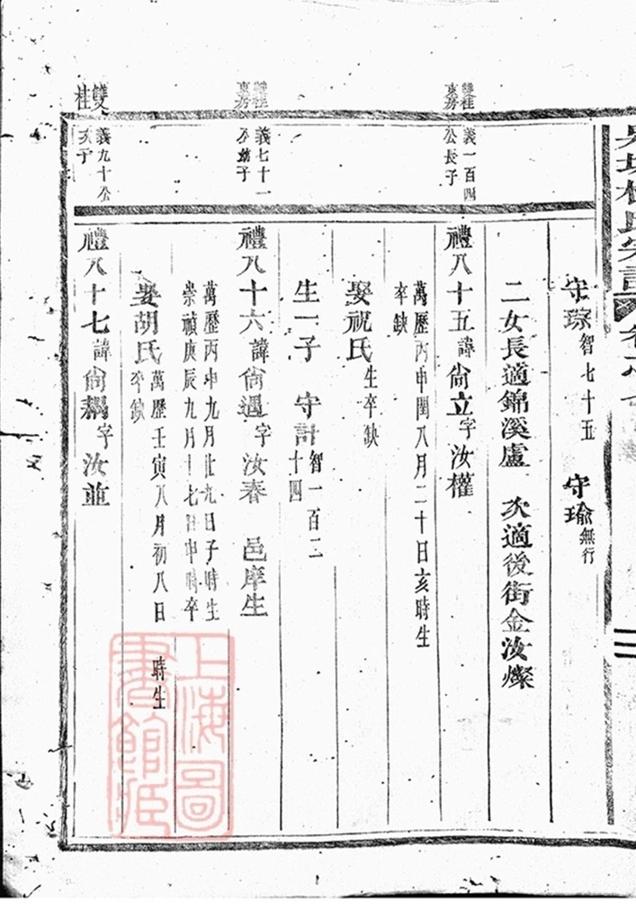 守琮智七十五 守瑜無行
二女長適錦溪盧 次適後街金汝燦
雙桂東房
義一百四公長子
禮八十五諱尙立字汝權
萬歷丙申閏八月二十日亥時生
卒缺
娶祝氏生卒缺
生一子 守計智一百二十四
雙桂東房
義七十一公幼子
禮八十六諱尙遇字汝春 邑庠生
萬歷丙申九月廿九日子時生
崇禎庚辰九月十七日申時卒
娶胡氏萬歷壬寅八月初八日 時生
卒缺
雙桂
義九十公次子
禮八十七諱尙鵷字汝並
上海圖書館藏